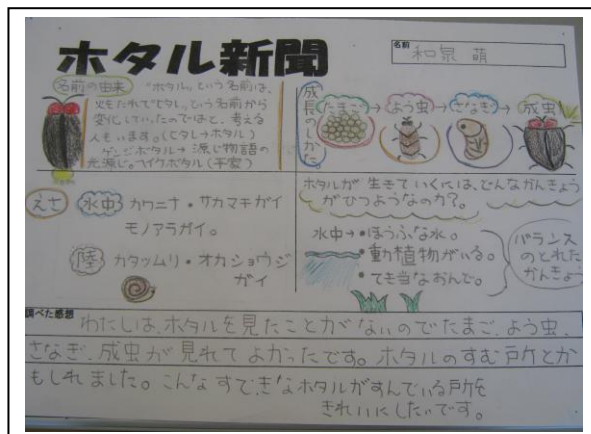 ホタル新聞
名前
和泉 萌
名前の由来
"ホタル"という名前は、
火をたれで"ヒタル"という名前から
変化していったのではと、考える
人もいます。(ヒタレ→ホタル)
ゲンジボタル→源じ物語の
光源じ。ヘイケボタル(平家)
成長のしかた
たまご→よう虫→さなぎ→成虫
えさ
水中 カワニナ・サカマキガイ
モノアラガイ。
陸 カタツムリ・オカショウジ
ガイ
ホタルが生きていくには、どんなかんきょう
がひつようなのか?。
水中→・ほうふな水。
・動植物がいる。
・てき当なおんど。
バランス
のとれた
かんきょう
調べた感想
わたしは、ホタルを見たことがないのでたまご、よう虫、
さなぎ、成虫が見れてよかったです。ホタルのすむ所とか
もしれました。こんなすてきなホタルがすんでいる所を
きれいにしたいです。